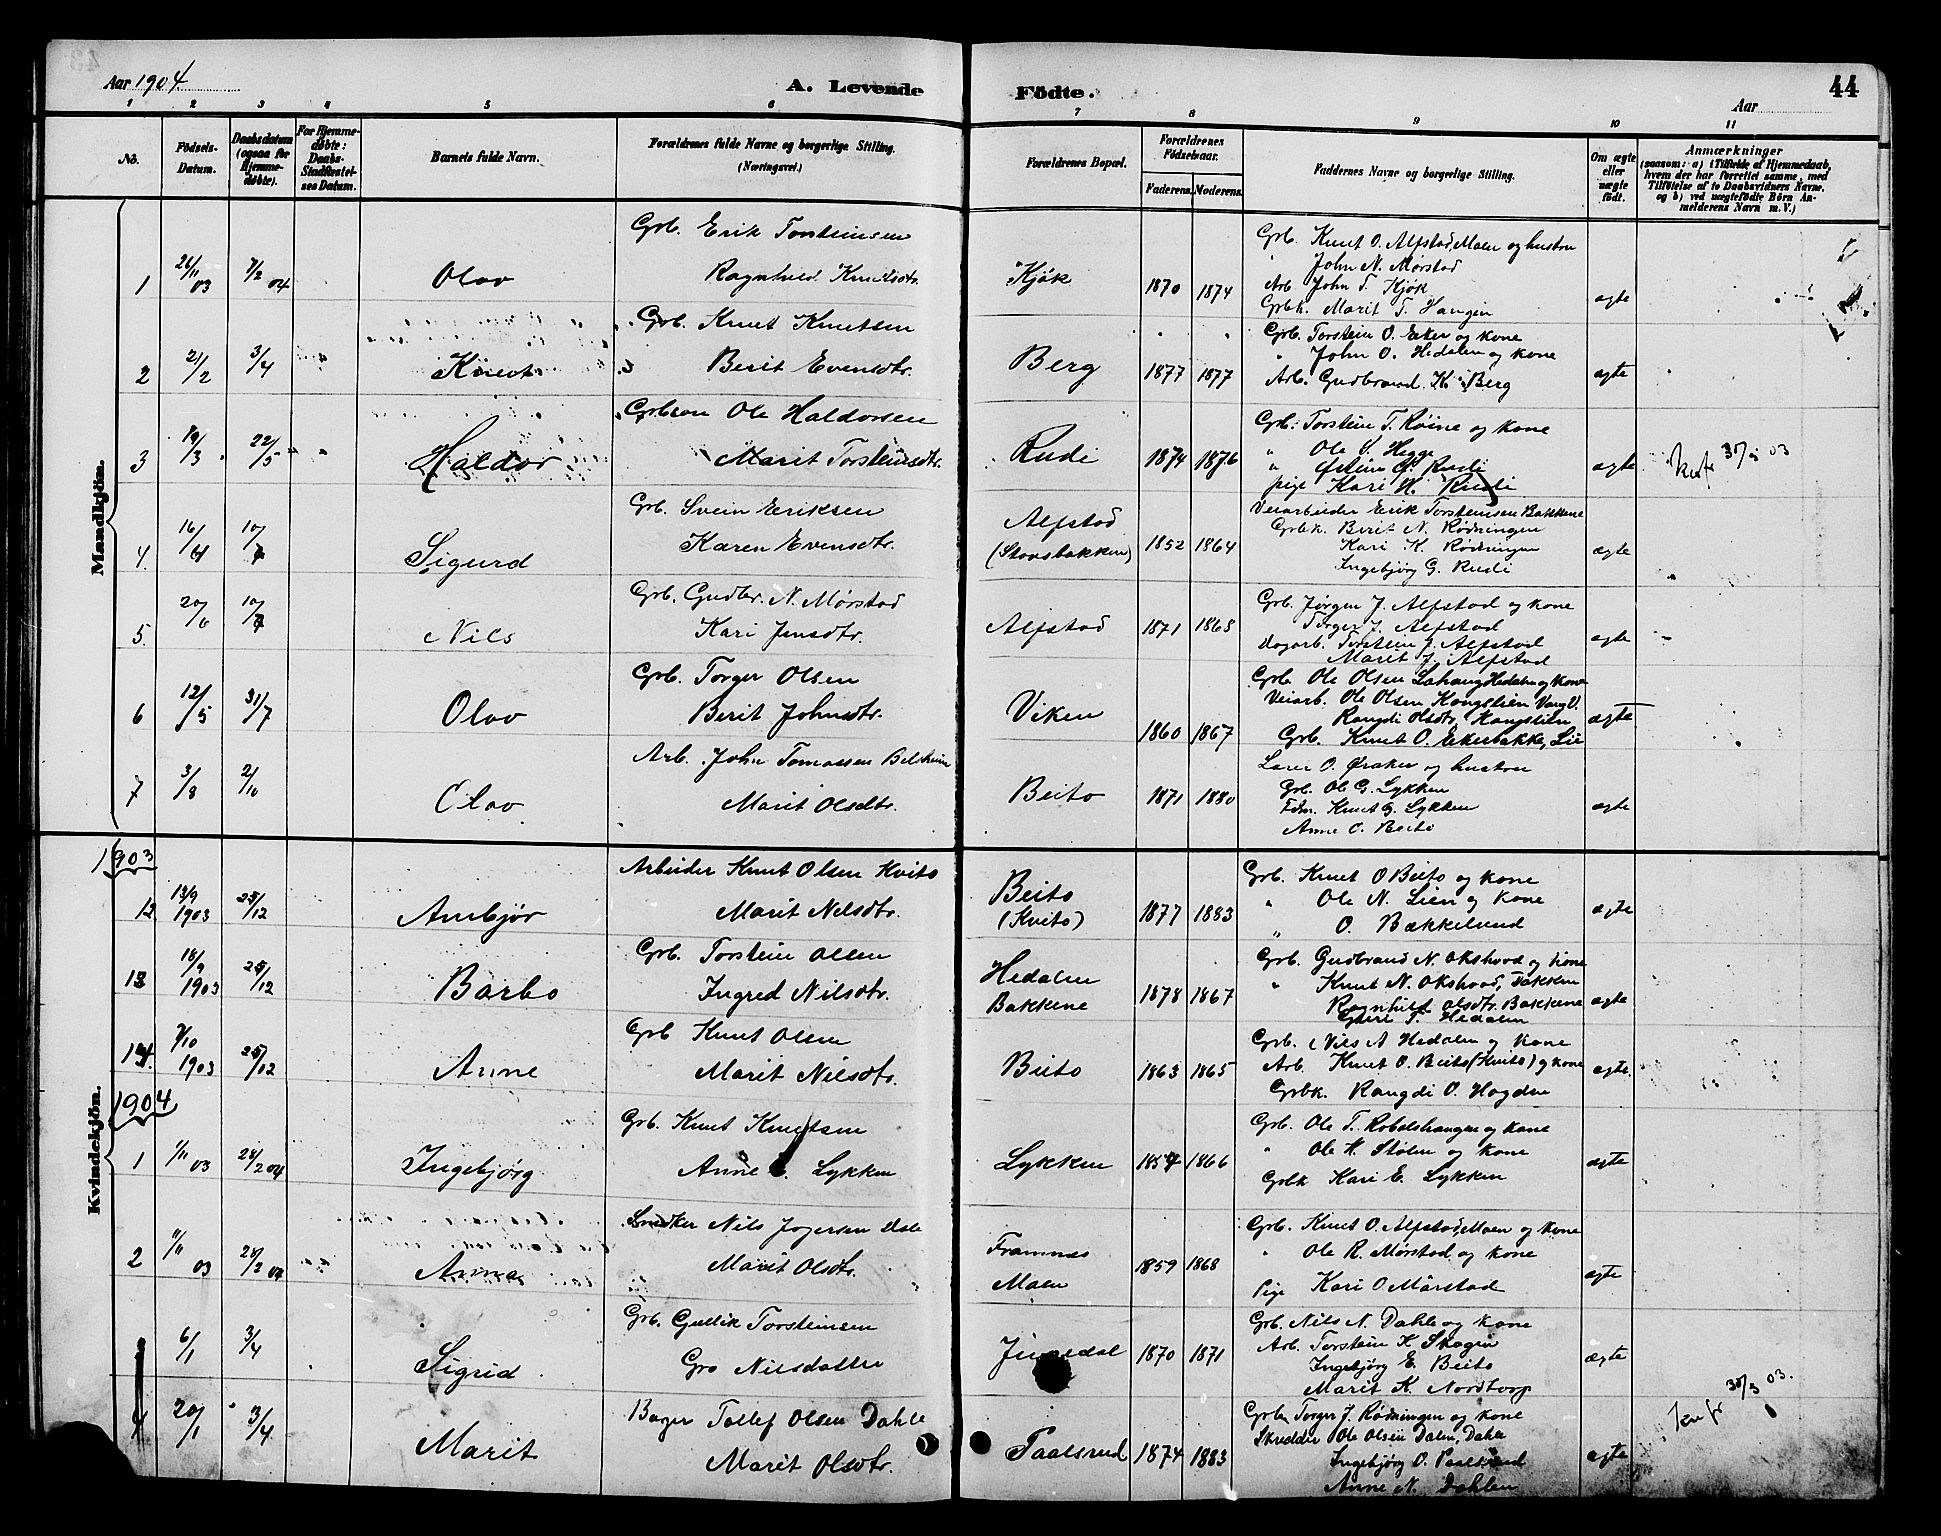 Aar 1904
A. Levende
Födte.
44
Aar
1 2 3 4 5 6 7 8 9 10 11
No.
Födsels-Datum.
Daabsdatum (ogsaa for Hjemme-döbte).
For Hjemme-döbte: Daabs-Stadfæstelses Datum.
Barnets fulde Navn.
Forældrenes fulde Navne og borgerlige Stilling. (Næringsvei.)
Forældrenes Bopæl.
Forældrenes Födselsaar.
Faderens. Moderens.
Faddernes Navne og borgerlige Stilling.
Om ægte eller uægte födt.
Anmærkninger
(saasom: a) i Tilfælde af Hjemmedaab, hvem der har forrettet samme, med Tilföielse af to Daabsvidners Navne. og b) ved uægtefödte Börn Anmelderens Navn m. V.)
Mandkjön.
1 26/11 03 7/2 04 Olav
Grb. Erik Torsteinsen
Ragnhild Knudsdtr.
Kjøk 1870 1874
Grb. Knut O. Alfstad, Moen og hustru
" John N. Mørstad
Arb. John T. Kjøk
Grbk. Marit T. Haugen
ægte
2 21/2 3/4 Knut
Grb. Knut Knutsen
Berit Evensdtr.
Berg 1877 1877
Grb. Torstein O. Eker og kone
" John O. Hedalen og kone
Arb. Gudbrand K. Berg
ægte
3 19/3 22/5 Haldor
Grbsøn Ole Haldorsen
Marit Torsteinsdtr.
Rudi 1874 1876
Grb. Torstein T. Røine og kone
" Ole S. Hegge
" Østein G. Rudi
pige Kari H. Rudi
ægte
4. 16/4 10/7 Sigurd
Grb. Svein Eriksen
Karen Evensdtr.
Alfstad
(Stavsbakken) 1852 1864
Veiarbeider Erik Torsteinsen Bakkene
Grbk. Berit N. Rødningen
Kari K. Rødningen
Ingebjørg G. Rudi
ægte
5. 20/6 10/7 Nils
Grb. Gudbr. N. Mørstad
Kari Jensdtr.
Alfstad 1871 1868
Grb. Jørgen J. Alfstad og kone
Torger J. Alfstad
Dagarb. Torstein J. Alfstad
Marit J. Alfstad
ægte
6 12/5 31/7 Olav
Grb. Torger Olsen
Berit Johnsdtr.
Viken 1860 1867
Grb. Ole Olsen Hedalen og kone
Veiarb. Ole Olsen Kongslien Vang V.
Rangdi Olsdtr, Kongslien
Grb. Knut O. Ekerbakke, Lie
ægte
7 3/8 2/10 Olav
Arb. John Tomassen Belsheim
Marit Olsdtr.
Beito 1871 1880
Lærer O. Øraker og hustru
Grb. Ole G. Lykken
Fdm. Knut G. Lykken
Anne O. Beito
ægte
Kvindekjön.
1903
12 13/9 1903 25/12 Ambjør
Arbeider Knut Olsen Kvito
Marit Nilsdtr.
Beito
(Kvito) 1877 1883
Grb. Knut O Beito og kone
" Ole N. Lien og kone
" O. Bækkelund
ægte
13 18/9 1903 25/12 Barbo
Grb. Torstein Olsen
Ingrid Nilsdtr.
Hedalen
Bakkene 1878 1867
Grb. Gudbrand N. Okshovd og kone
" Knut N. Okshovd, Bakken
Ragnhild Olsdtr. Bakkene
Guri T. Hedalen
ægte
14. 7/10 1903 25/12 Anne
Grb Knut Olsen
Marit Nilsdtr.
Beito 1863 1865
Grb. Nils A Hedalen og kone
Arb. Knut O. Beito (Kvito) og kone
Grbk. Rangdi O. Hagden
ægte.
1904
1 1/11 03 28/2 04 Ingebjørg
Grb. Knut Knutsen
Anne E. Lykken
Lykken 1857 1866
Grb. Ole T. Robølshaugen og kone
" Ole K. Stølen og kone
Grbk Kari E. Lykken
ægte
2 11/11 03 28/2 04 Anna
Snedker Nils Jogersen Dale
Marit Olsdtr.
Framnes
Moen 1859 1868
Grb. Knut O. Alfstad, Moen og kone
" Ole R. Mørstad og kone
Pige Kari O Mørstad
ægte
6/1 3/4 Sigrid
Grb. Gullik Torsteinsen
Gro Nilsdatter
1870 1871
Grb. Nils N. Dahle og kone
Arb. Torstein K Skogen
Ingebjørg E. Beito
Marit K. Nordtorp
ægte
4 20/1 3/4 Marit
Bager Tollef Olsen Dahle
Marit Olsdtr.
Paalsrud 1874 1883
Grb. Torger J. Rødningen og kone
Skredder Ole Olsen Dalen, Dahle
Ingebjørg O. Paalsrud
Anne N. Dahlen
ægte